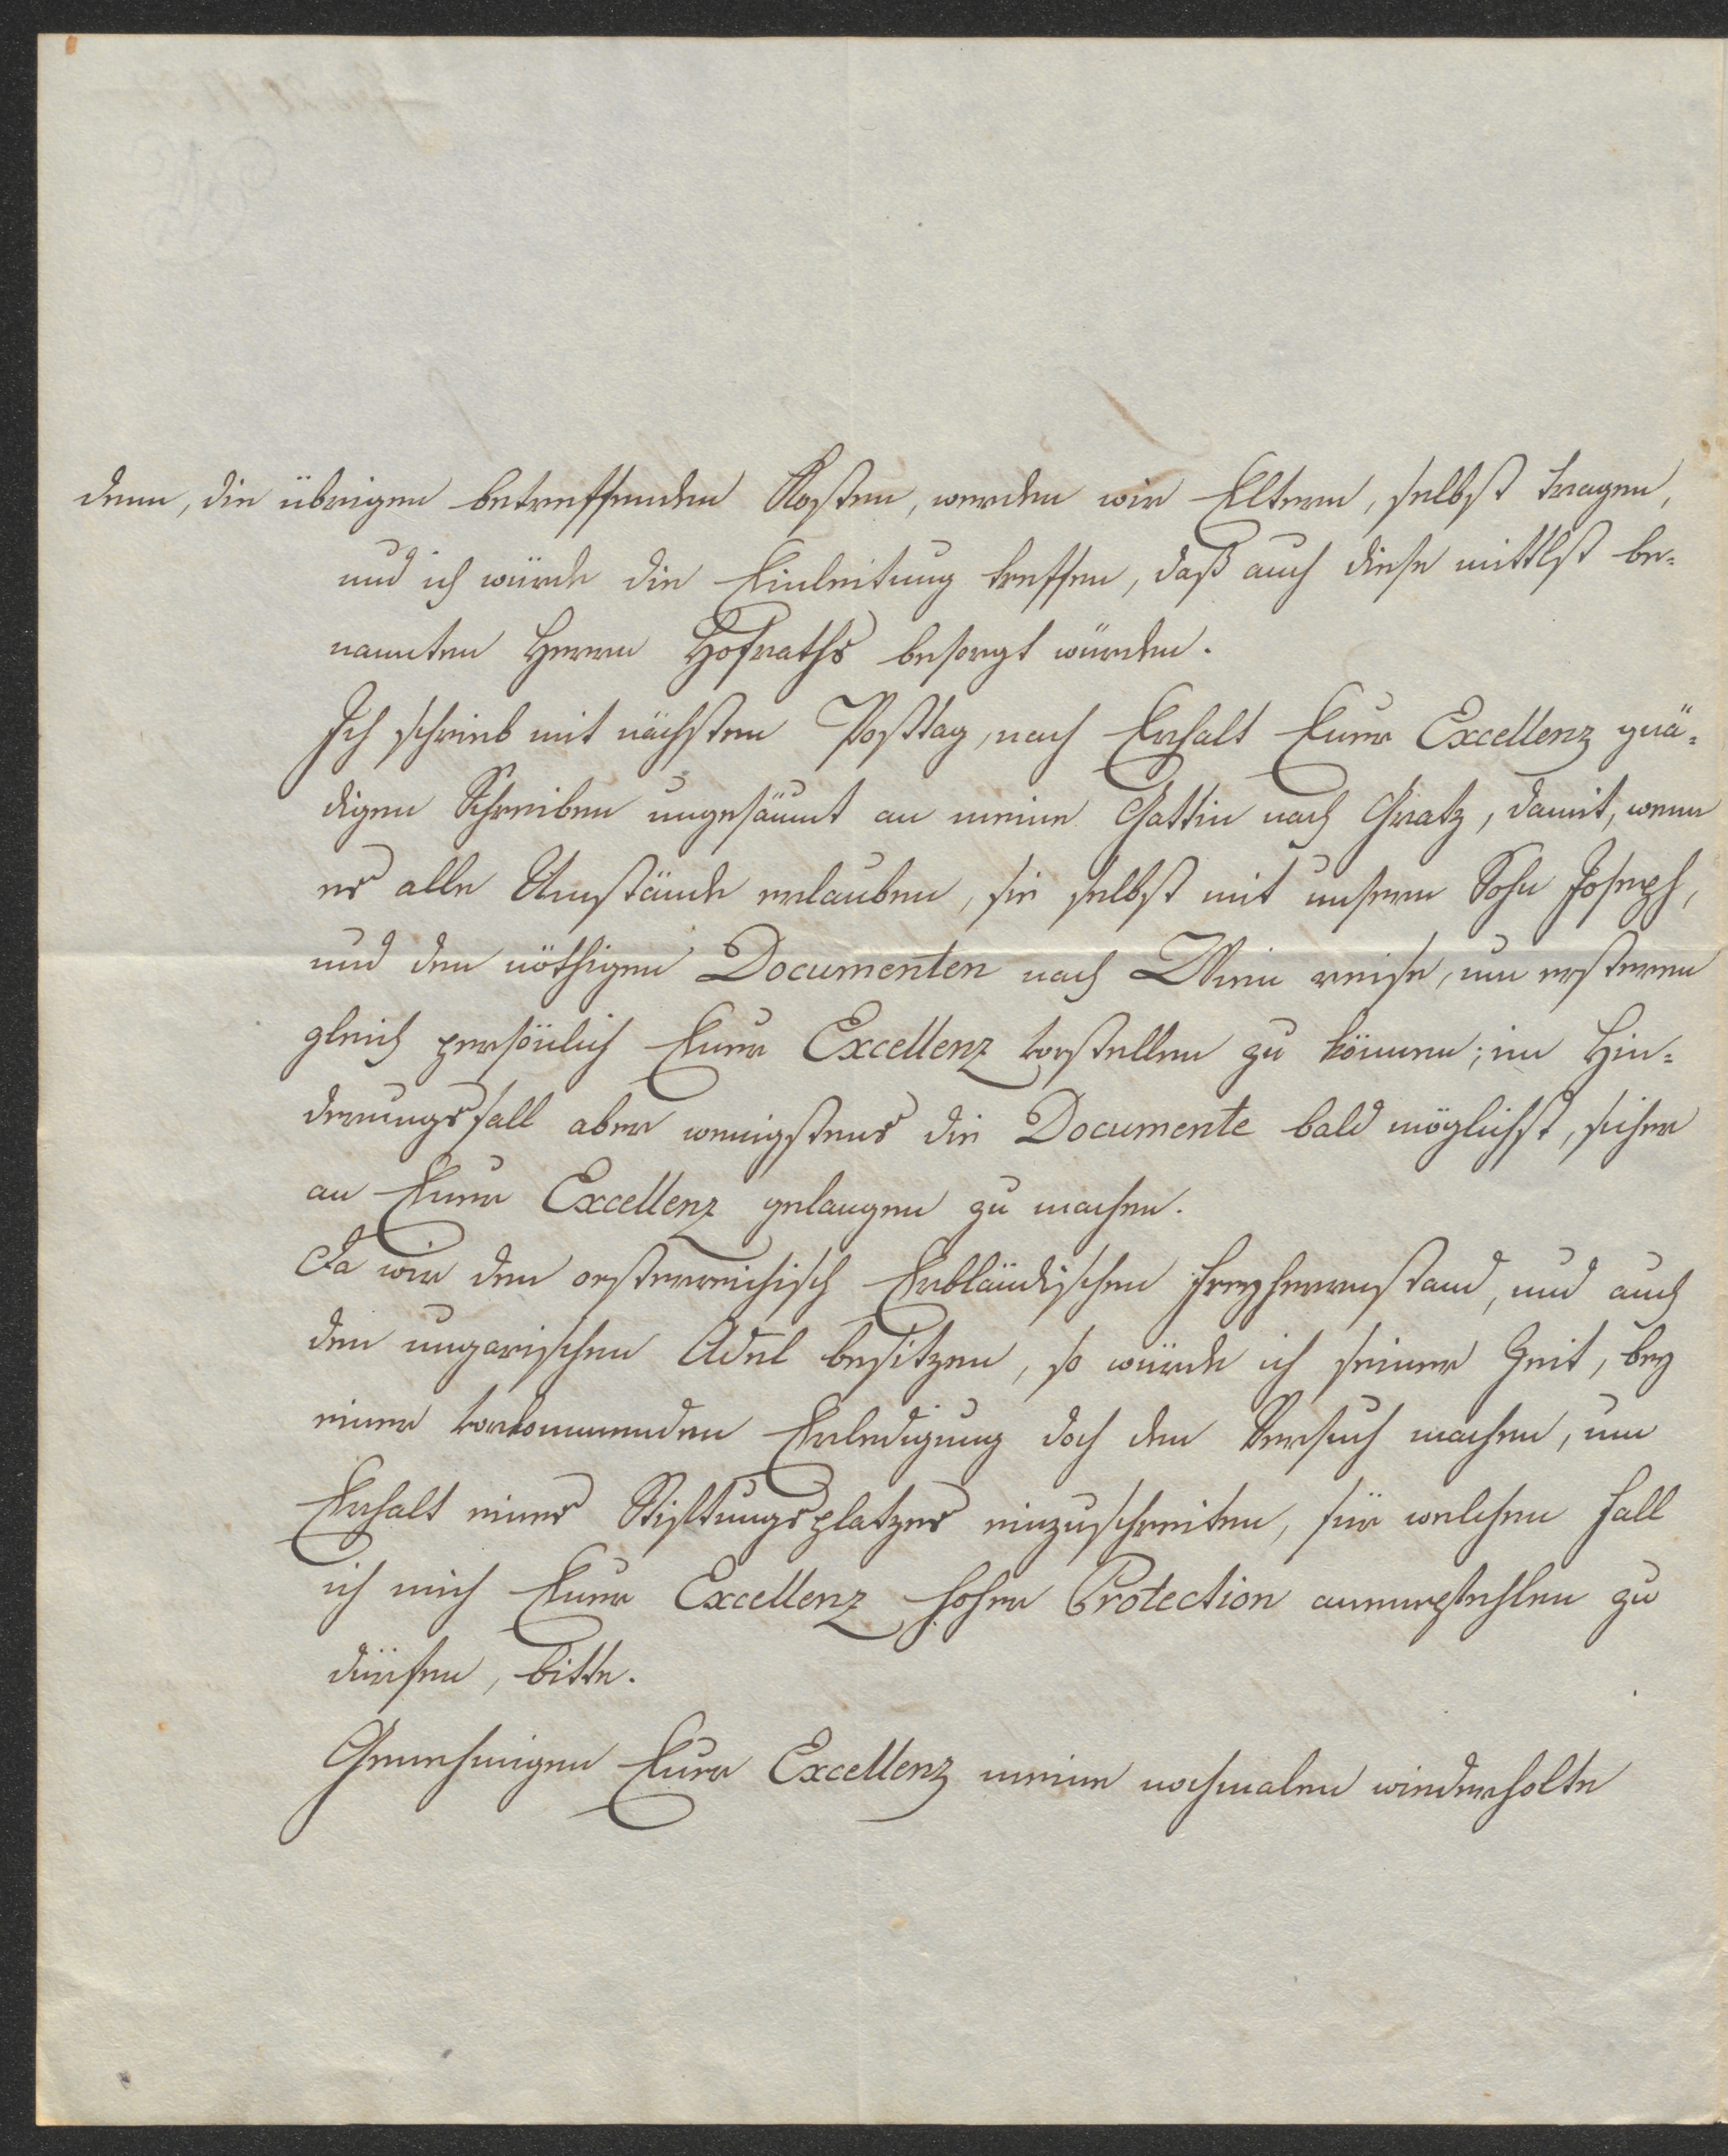 denn, die übrigen betreffenden Kosten, werden wir Eltern, selbst tragen,
und ich würde die Einleitung treffen, daß auch diese mittlst be-
nannten Herrn Hofraths besorgt würden.
Ich schrieb mit nächsten Posttag, nach Erhalt Euer Excellenz gnä-
digen Schreiben ungesäumt an meine Gattin nach Gratz, damit, wenn
es alle Umstände erlauben, sie selbst mit unsern Sohn Joseph,
und den nöthigen Documenten nach Wien reise, um ersteren
gleich persönlich Euer Excellenz vorstellen zu können; im Hin-
derungsfall aber wenigstens die Documente bald möglichst, sicher
an Euer Excellenz gelangen zu machen.
Da wir den oesterreichisch Erbländischen Freyherrnstand, und auch
den ungarischen Adel besitzen, so würde ich seiner Zeit, bey
einer vorkommenden Erledigung doch den Versuch machen, um
Erhalt eines Stiftungsplatzes einzuschreiten, für welchen Fall
ich mich Euer Excellenz hoher Protection anempfehlen zu
dürfen, bitte.
Genehmigen Euer Excellenz meine nochmalen wiederholte